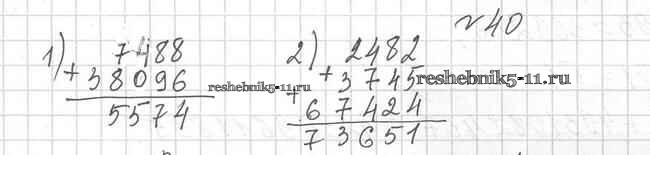 №40
1) 7488
+ 38096
5574
2) 2482
+ 3745
+ 67424
73651
reshebnik5-11.ru
reshebnik5-11.ru